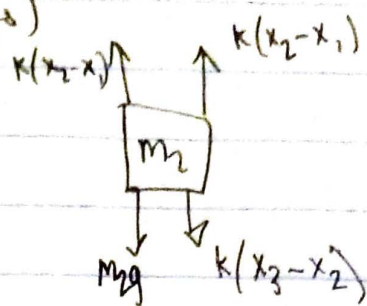 3)
K(x₂-x₁)
K(x₂-x₁)
m₂
m₂g
K(x₃-x₂)